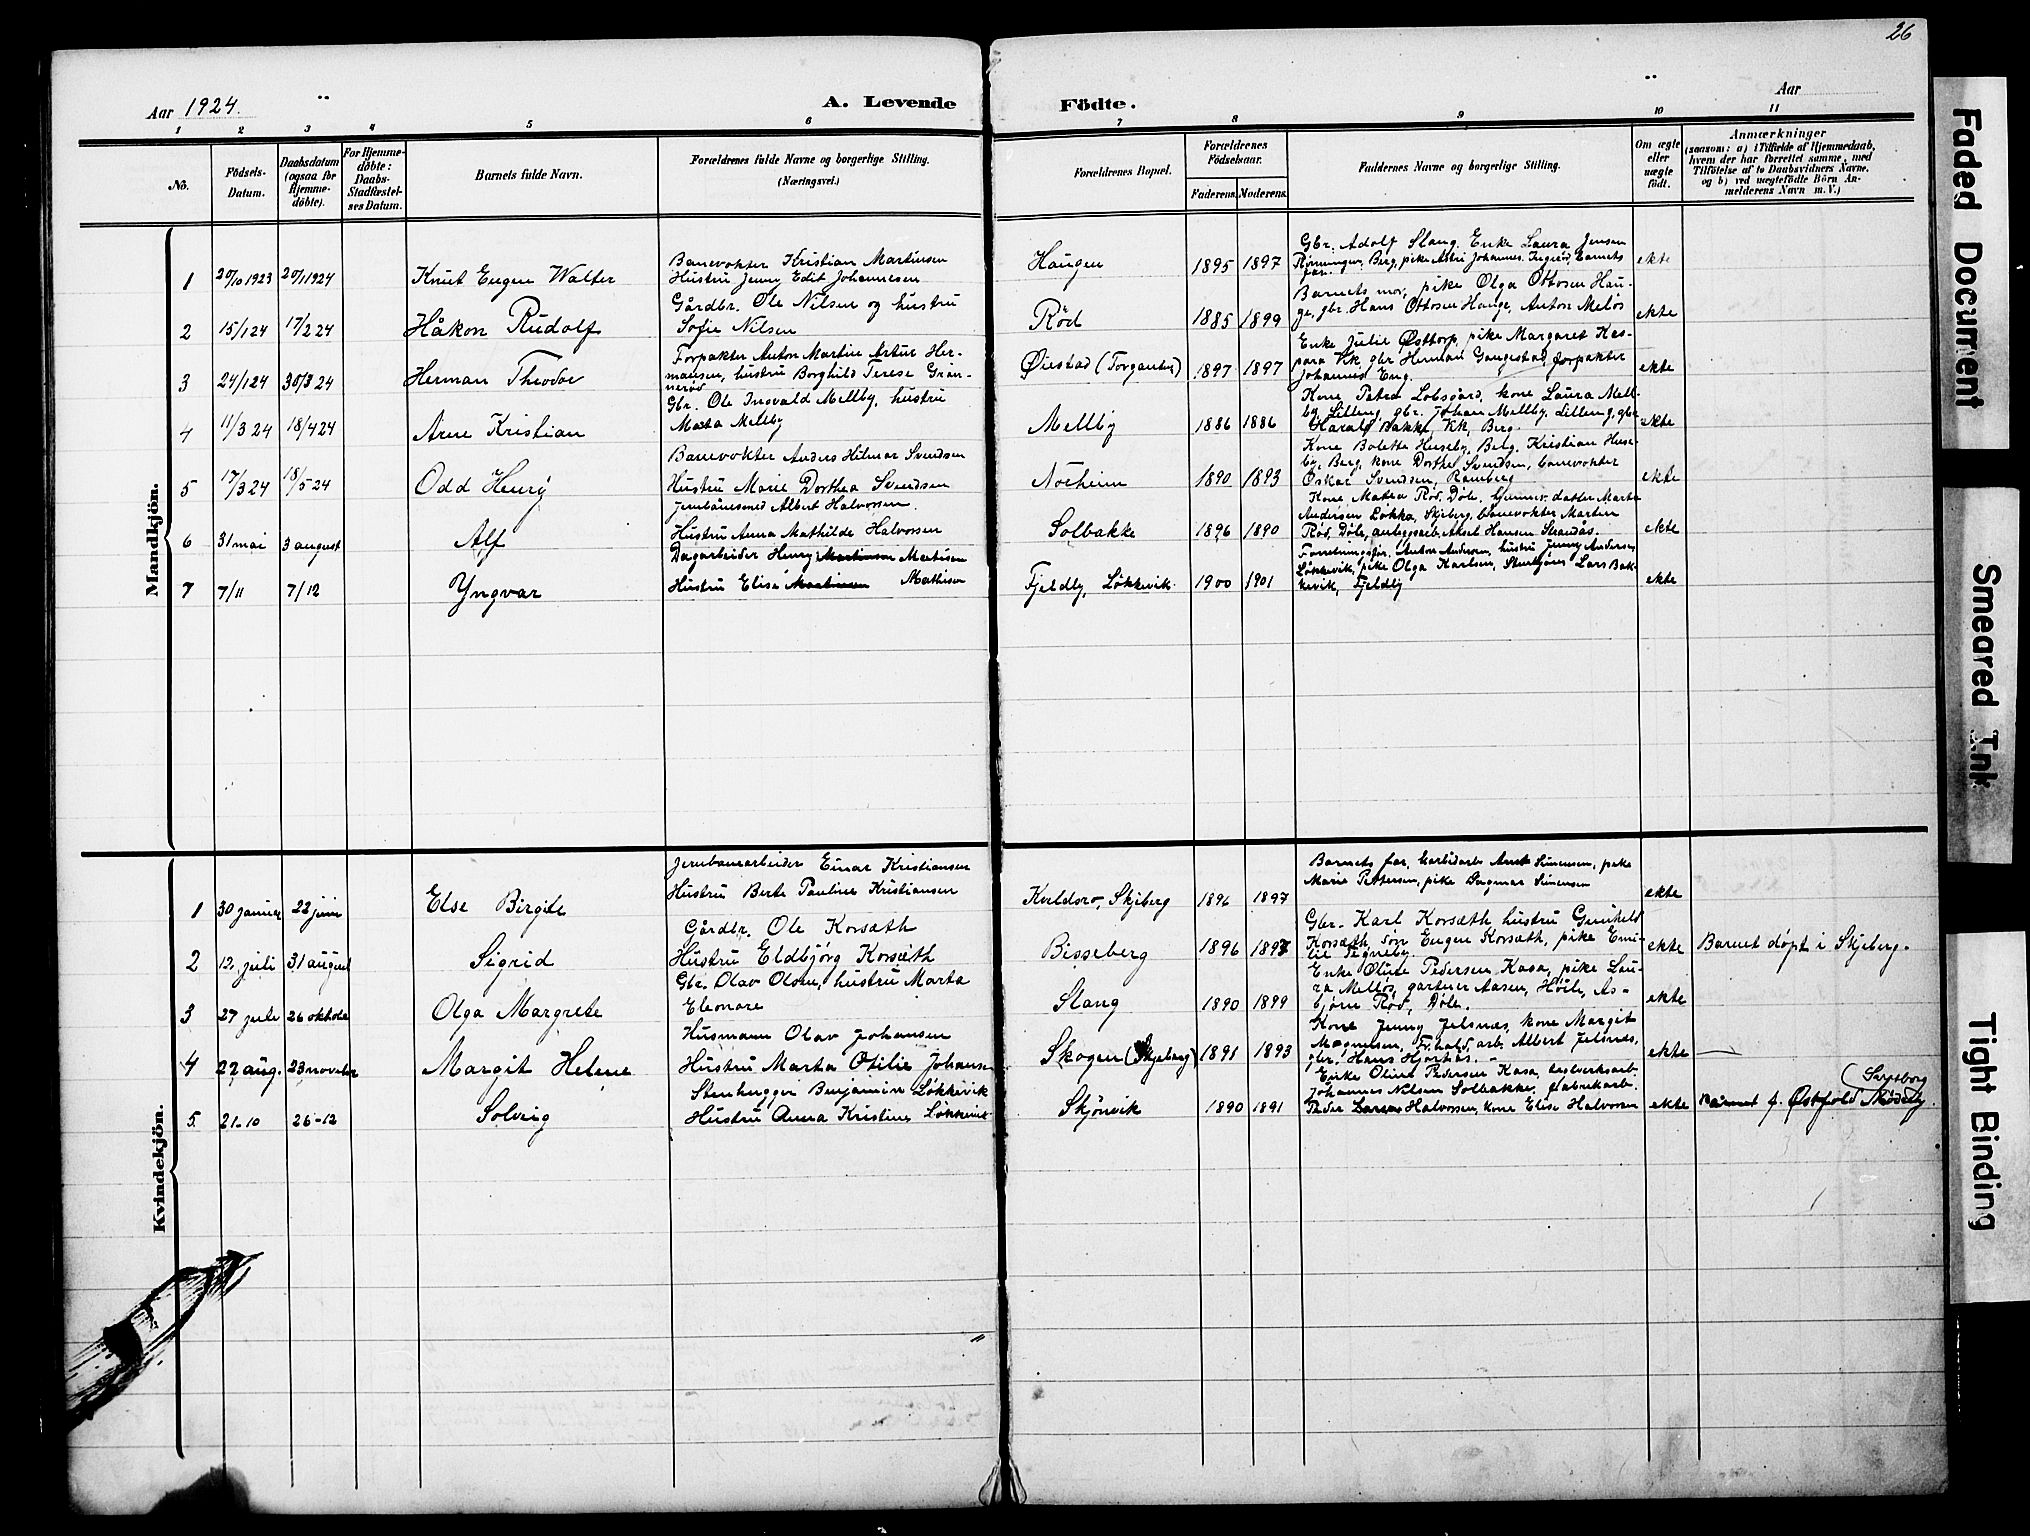 26
Aar 1924. A. Levende Födte. Aar
1 2 3 4 5 6 7 8 9 10 11
No.
Födsels-Datum.
Daabsdatum (ogsaa for Hjemme-döbte).
For Hjemme-döbte: Daabs-Stadfæstel-ses Datum.
Barnets fulde Navn.
Forældrenes fulde Navne og borgerlige Stilling.
(Næringsvei.)
Forældrenes Bopæl.
Forældrenes Födselsaar.
Faderens. Moderens.
Faddernes Navne og borgerlige Stilling.
Om ægte eller uægte født.
Anmærkninger
(saasom: a) i Tilfælde af Hjemmedaab, hvem der har forrettet samme, med Tilföielse af to Daabsvidners Navne, og b) ved uægtefödte Börn An-melderens Navn m. V.)
Mandkjön.
1 20/10 1923 20/1 1924 Knut Eugen Walter
Banevokter Kristian Martinsen
Hustru Jenny Edit Johannesen
Haugen 1895 1897
Gbr. Adolf Slang. Enke Laura Jensen
Rønningen, Berg, pike Astri Johannes. Ingerød, Barnets
far.
ekte
2 15/1 24 17/2 24 Håkon Rudolf
Gårdbr. Ole Nilsen og hustru
Sofie Nilsen
Rød 1885 1899
Barnets mor, pike Olga Ottosen Hau-
ge, gbr. Hans Ottosen Hauge, Anton Meløs
ekte
3 24/1 24 30/3 24 Herman Theodor
Forpakter Anton Martin Artur Her-
mansen, hustru Borghild Terese Gran-
nerød
Øiestad (Torgauten) 1897 1897
Enke Julie Østtorp, pike Margaret Kas-
para Vik gbr Herman Gaugestad forpakter
Johannes Eng.
ekte
4 11/3 24 18/4 24 Arne Kristian
Gbr. Ole Ingvald Mellby, hustru
Marta Mellby
Mellby 1886 1886
Kone Petra Løbsgård, kone Laura Mell-
by, Lilleng, gbr. Johan Mellby, Lilleng, gbr
Harald Bakke, Vik, Berg.
ekte
5 17/3 24 18/5 24 Odd Henry
Banevokter Anders Hilmar Svendsen
Hustru Marie Dorthea Svendsen
Norheim 1890 1893
Kone Bolette Huseby, Berg. Kristian Huse-
by, Berg, kone Dorthe Svendsen, banevokter
Oskar Svendsen, Ramberg
ekte
6 31 mai 3 august Alf
Jernbanesmed Albert Halvorsen.
Hustru Anna Mathilde Halvorsen
Solbakke 1896 1890
Kone Matea Rød, Døle, hjemmev. datter Marta
Andersen Løkka, Skjeberg, banevokter Martin
Rød, Døle, anleggsarb. Aksel Hansen Strandås.
ekte
7 7/11 7/12 Yngvar
Dagarbeider Henry Martinsen Matisen
Hustru Elise Martinsen Mathisen
Fjeldly, Løkkevik 1900 1901
Forretningsfør. Anton Andersen, hustru Jenny Andersen
Løkkevik, pike Olga Karlsen, Stenhugger Lars Bak-
kevik, Fjeldly
ekte
Kvindekjön.
1 30 januar 22 juni Else Birgite
Jernbanearbeider Einar Kristiansen
Hustru Berte Pauline Kristiansen
Kveldsro, Skjeberg 1896 1897
Barnets far, karbidarb. Arnt Simensen, pike
Marie Pettersen, pike Dagmar Simensen
ekte
2 12. juli 31 august Sigrid
Gårdbr. Ole Korsæth
Hustru Eldbjörg Korsæth
Bisseberg 1896 1897
Gbr. Karl Korsæth hustru Gunhild
Korsæth, søn Eugen Korsæth, pike Emi-
lie Tigneby
ekte Barnet døpt i Skjeberg.
3 27 juli 26 oktober Olga Margrete
Gbr. Olav Olsen, hustru Marta
Eleonore
Slang 1890 1899
Enke Oline Pedersen Kasa, pike Lau-
ra Melløs, gartner Aasen, Höile, As-
bjørn Rød, Døle.
ekte
4 22 aug. 23 november Margit Helene
Husmann Olav Johansen
Hustru Marta Otilie Johansen
Skogen (Skjeberg) 1891 1893
Kone Jenny Jelsnæs, kone Margit
Magnelsen, Fr.hald, arb. Albert Jelsnes,
gbr. Hans Hjortås. -
ekte
5. 21-10 26-12 Solveig
Stenhugger Benjamin Løkkevik
Hustru Anna Kristine Løkkevik
Skjönvik 1890 1891
Enke Oline Pedersen Kasa, teglverksarb.
Johannes Nilsen Solbakke, fabrikarb.
Peder Larsen Halvorsen, kone Elise Halvorsen
ekte Barnet f. Østfold Mødrehj.
Sarpsborg
Faded Document
Smeared Ink
Tight Binding